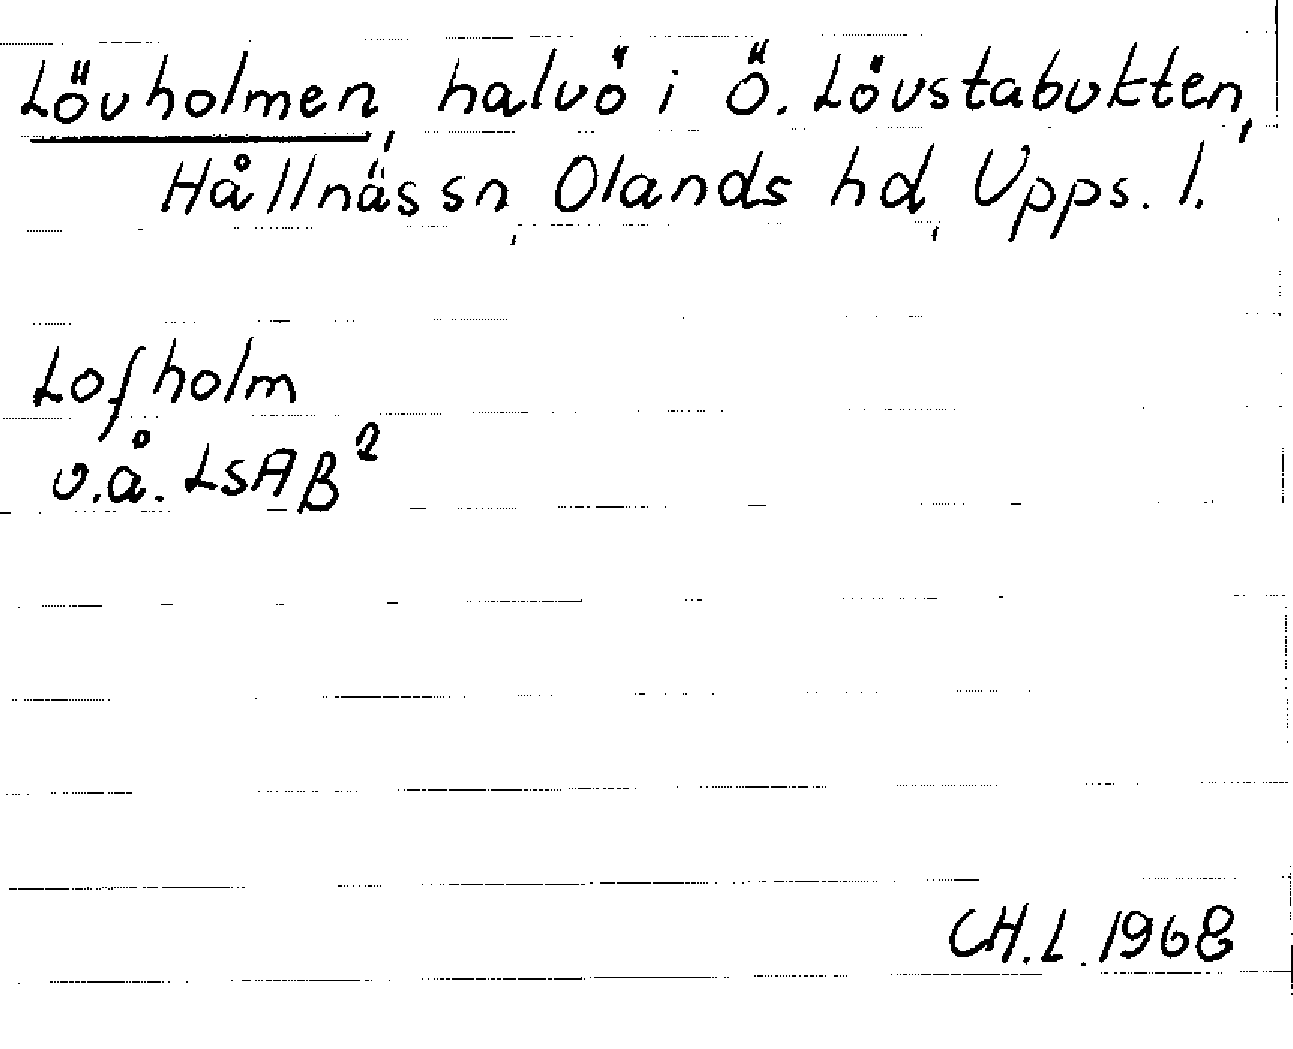 Lövholmen, halvö i Ö. Lövstabukten,
Hållnäs sn, Olands hd, Upps. l.
Lofholm
v.å. LSAB²
CH.L. 1968